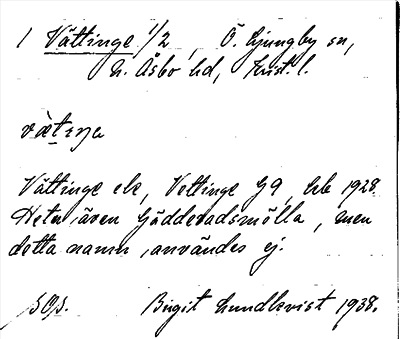 1 Vättinge 1/2, Ö. Ljungby sn,
N. Åsbo hd, Krist. l.
vätiŋa
Vättinge ek, Vettinge G9, hb 1928.
Heter även Gäddevadsmölla, men
detta namn användes ej.
Birgit Lundkvist 1938.